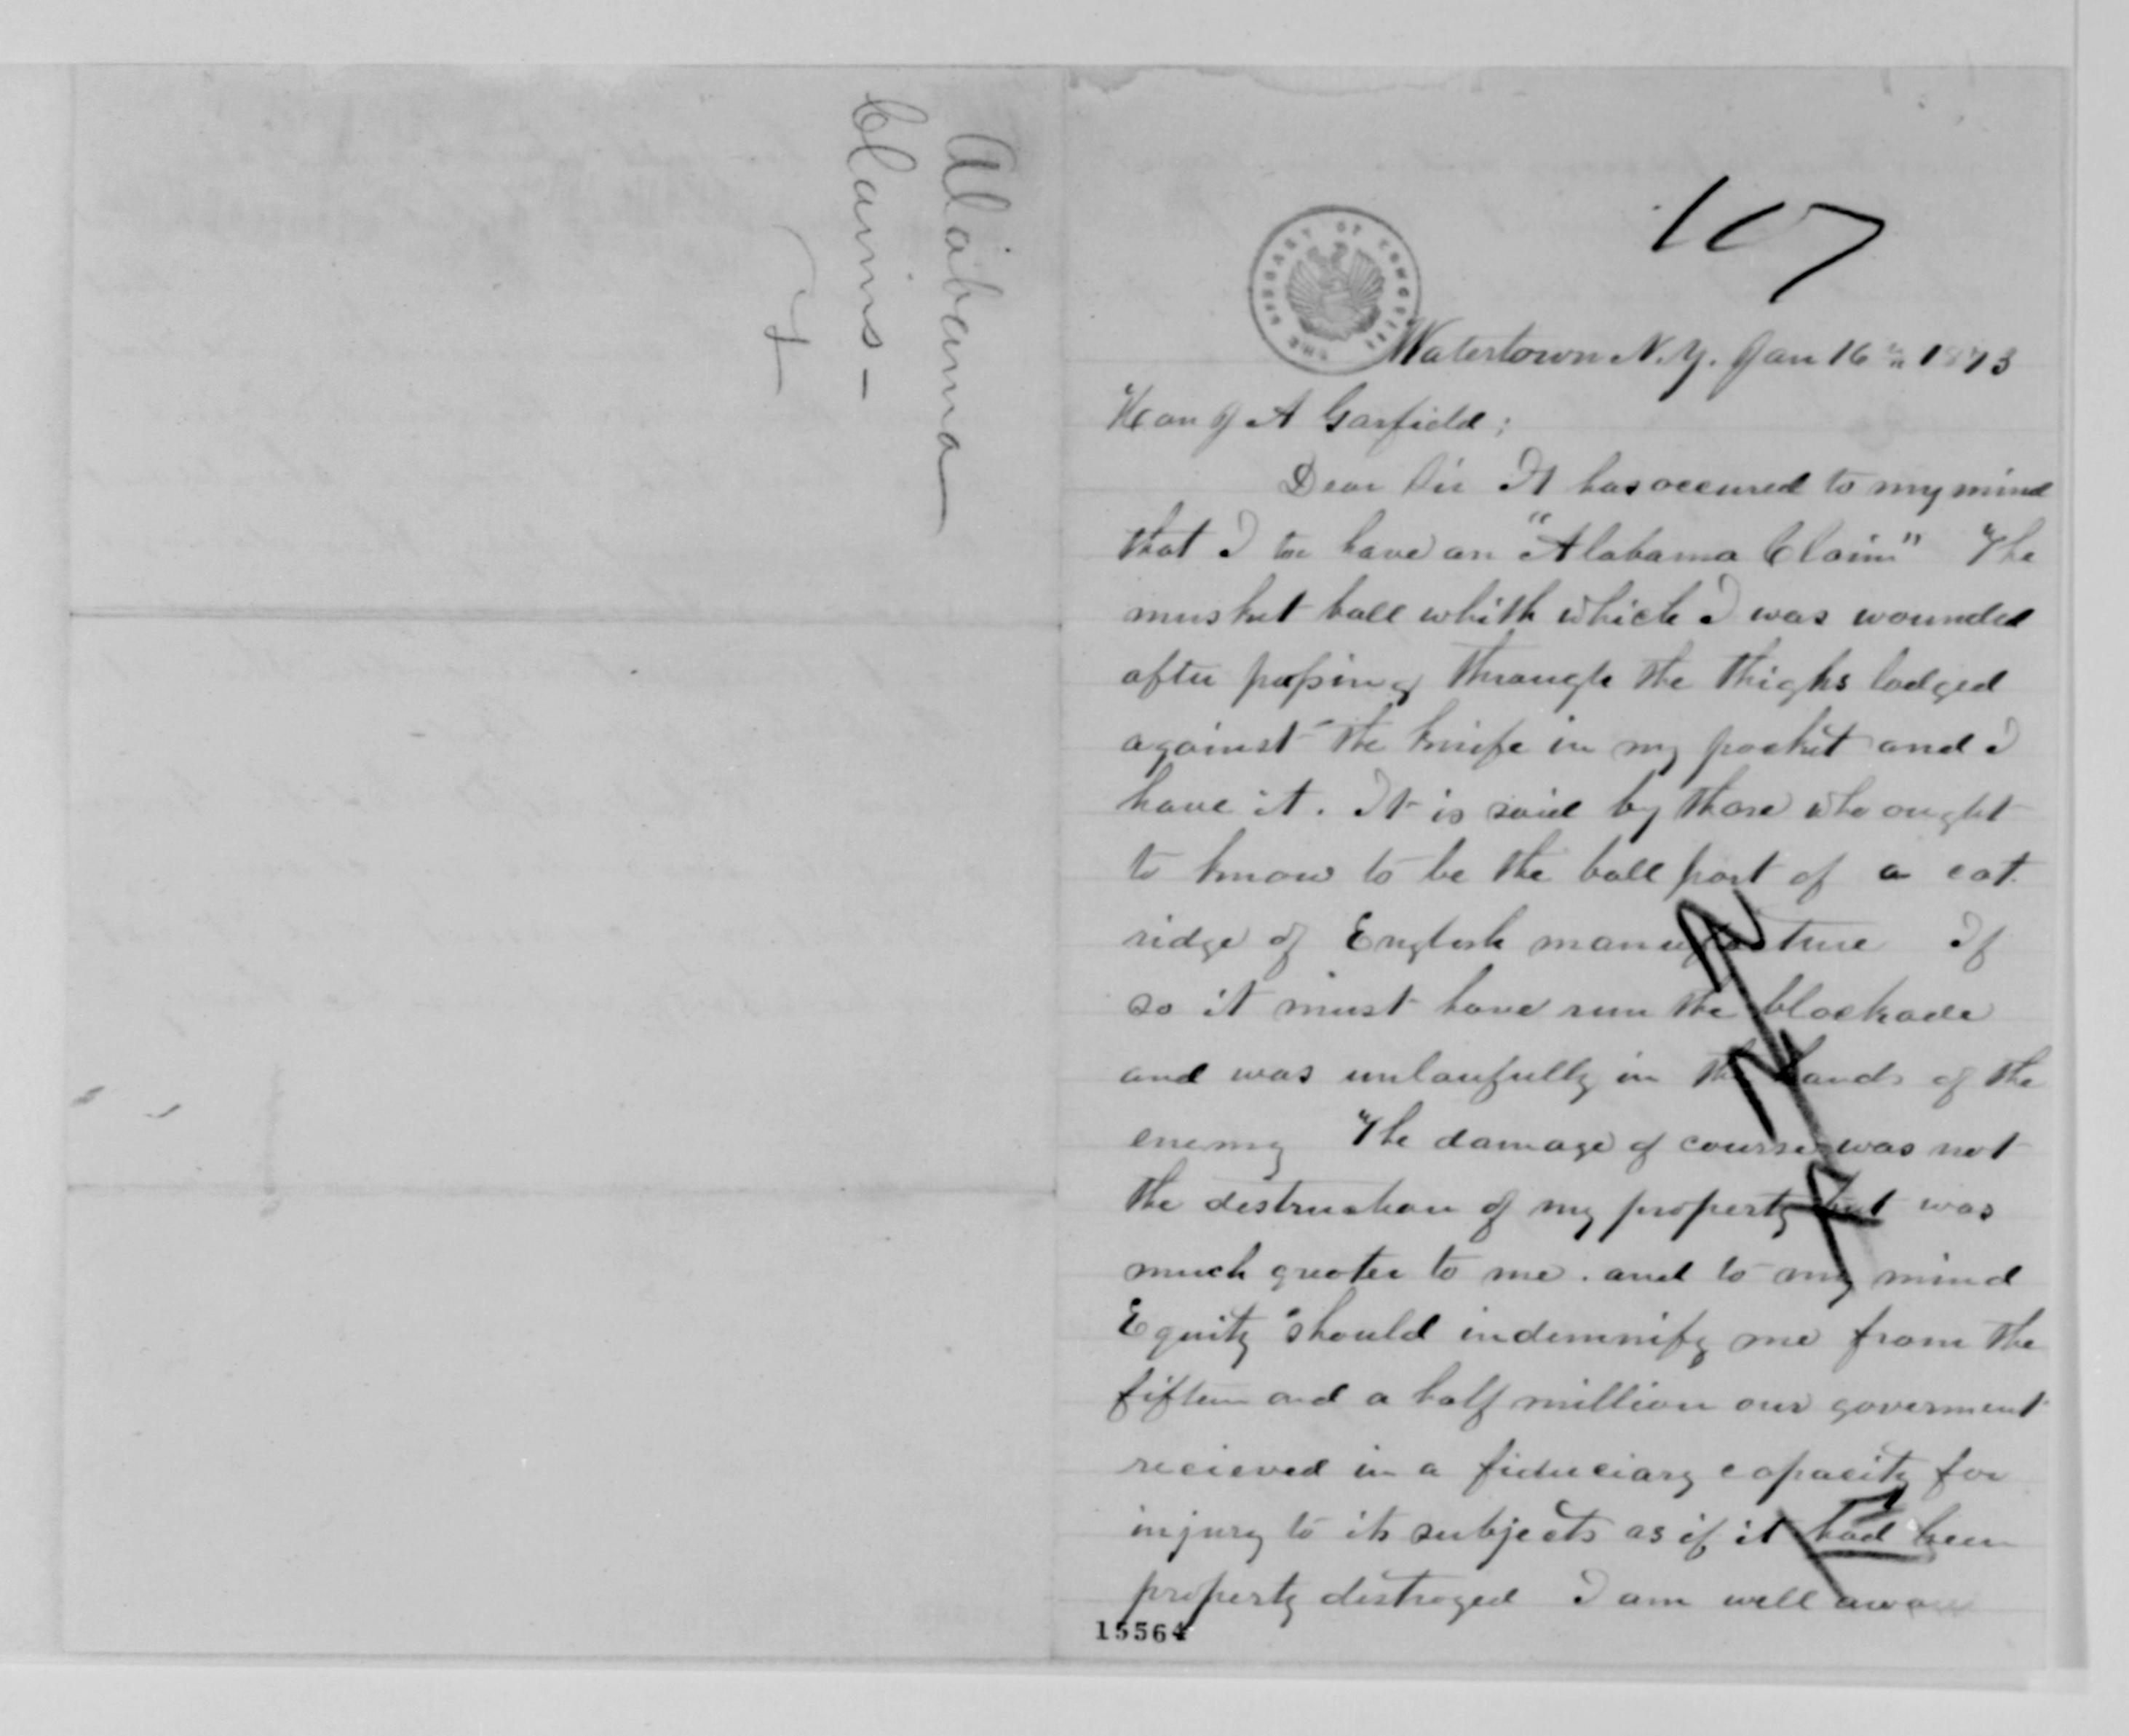 Alabama
Claims-
107
THE LIBRARY OF CONGRESS
Watertown N.Y. Jan 16th 1873
Hon J A Garfield;
Dear Sir It has occured to my mind
that I to have an "Alabama Claim" The
musket ball whith which I was wounded
after passing through the thighs lodged
against the knife in my pocket and I
have it. It is said by those who ought
to know to be the ball part of a cat
ridge of English manufacture If
so it must have run the blockade
and was unlawfully in the hands of the
enemy The damage of course was not
the destruction of my property but was
much greater to me. and to my mind
Equity should indemnify me from the
fifteen and a half million our goverment
recieved in a fiduciary capacity for
injury to its subjects as if it had been
property distroyed I am well aware
15564